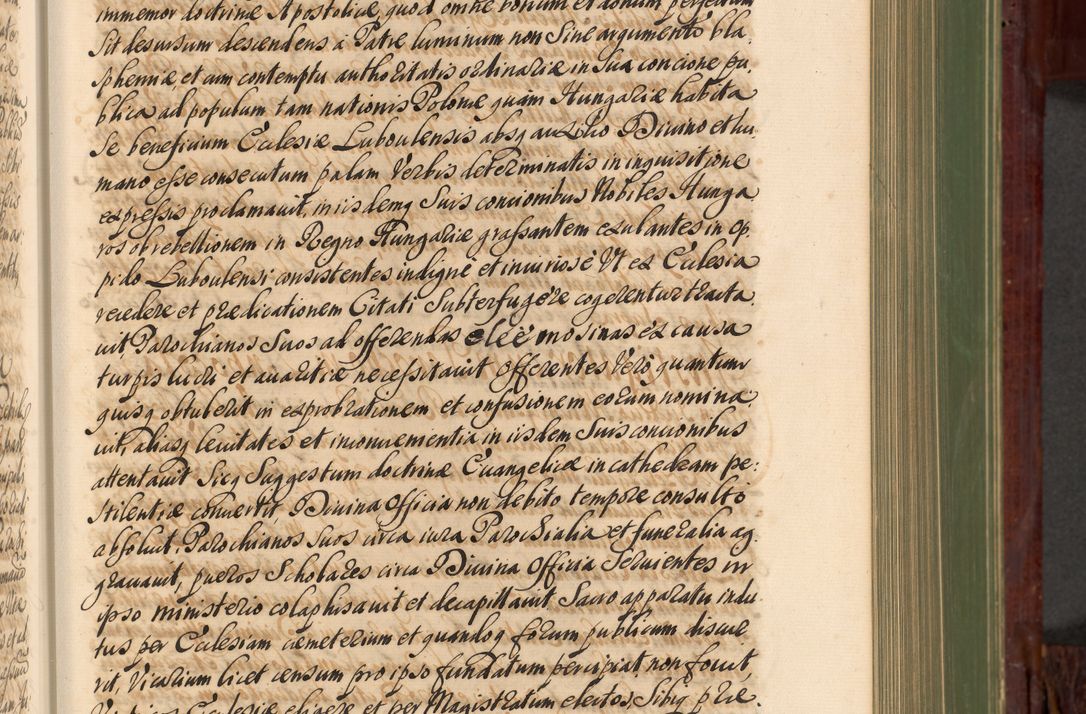 immemor doctrinæ Apostolicæ, quod omne bonum et donum perfectum
Sit desursum descendens à Patre luminum non Sine argumento bla,
sphemiæ, et cum contemptu authoritatis ordinariæ in Sua concione pu,
blica ad populum tam nationis Polonæ quàm Hungariæ habita
Se beneficium Ecclesiæ Luboulensis absq auxilio Divino et hu,
mano esse consecutum palam Verbis determinatis in inquisitione
expressis proclamauit, in iisdemq Suis concionibus Nobiles Hunga,
ros ob rebellionem in Regno Hungariæ grassantem exulantes in op,
pido Luboulensi consistentes indignè et iniuriosè Vt ex Ecclesia
recedere et prædicationem Citati Subterfugere cogerentur tracta,
uit, Parochianos Suos ad offerendas eleemosinas ex causa
turpis lucri et auaritiæ necessitauit Offerentes Verò quantum
quisq obtulerit in exprobrationem et confusionem eorum nomina,
uit, aliasq leuitates et inconuenientia in iisdem Suis concionibus
attentauit Sicq Suggestum doctrinæ Euangelicæ in cathedram pe:
stilentiæ conuertit, Diuina Officia non debito tempore consultò
absoluit, Parochianos Suos circa iura Parochialia et funeralia ag,
grauauit, pueros Scholares circa Diuina Officia Seruientes in
ipso ministerio colaphisauit et decapillauit Sacro apparatu indu,
tus per Ecclesiam cæmeterium et quandoq forum publicum discur,
rit, Vicarium licet censum pro ipso fundatum percipiat non fouit,
Ecclesiæ eligere et per Magistratum electos Sibiq præ,